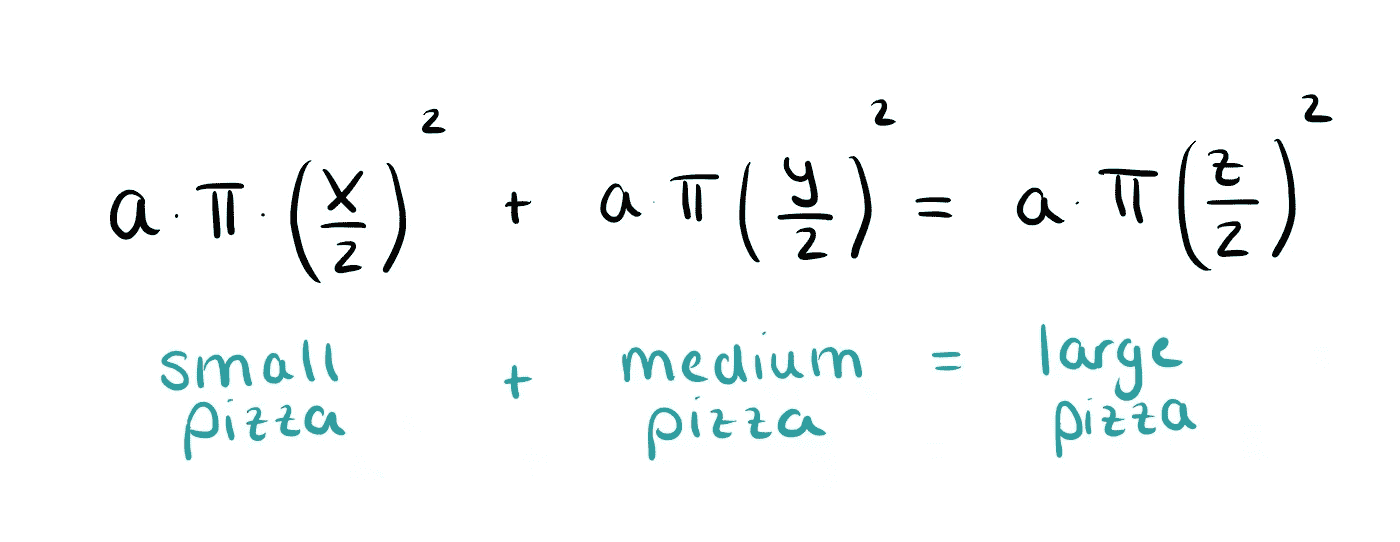 a · π · (x/2)² + a · π (y/2)² = a · π (z/2)²
small pizza + medium pizza = large pizza